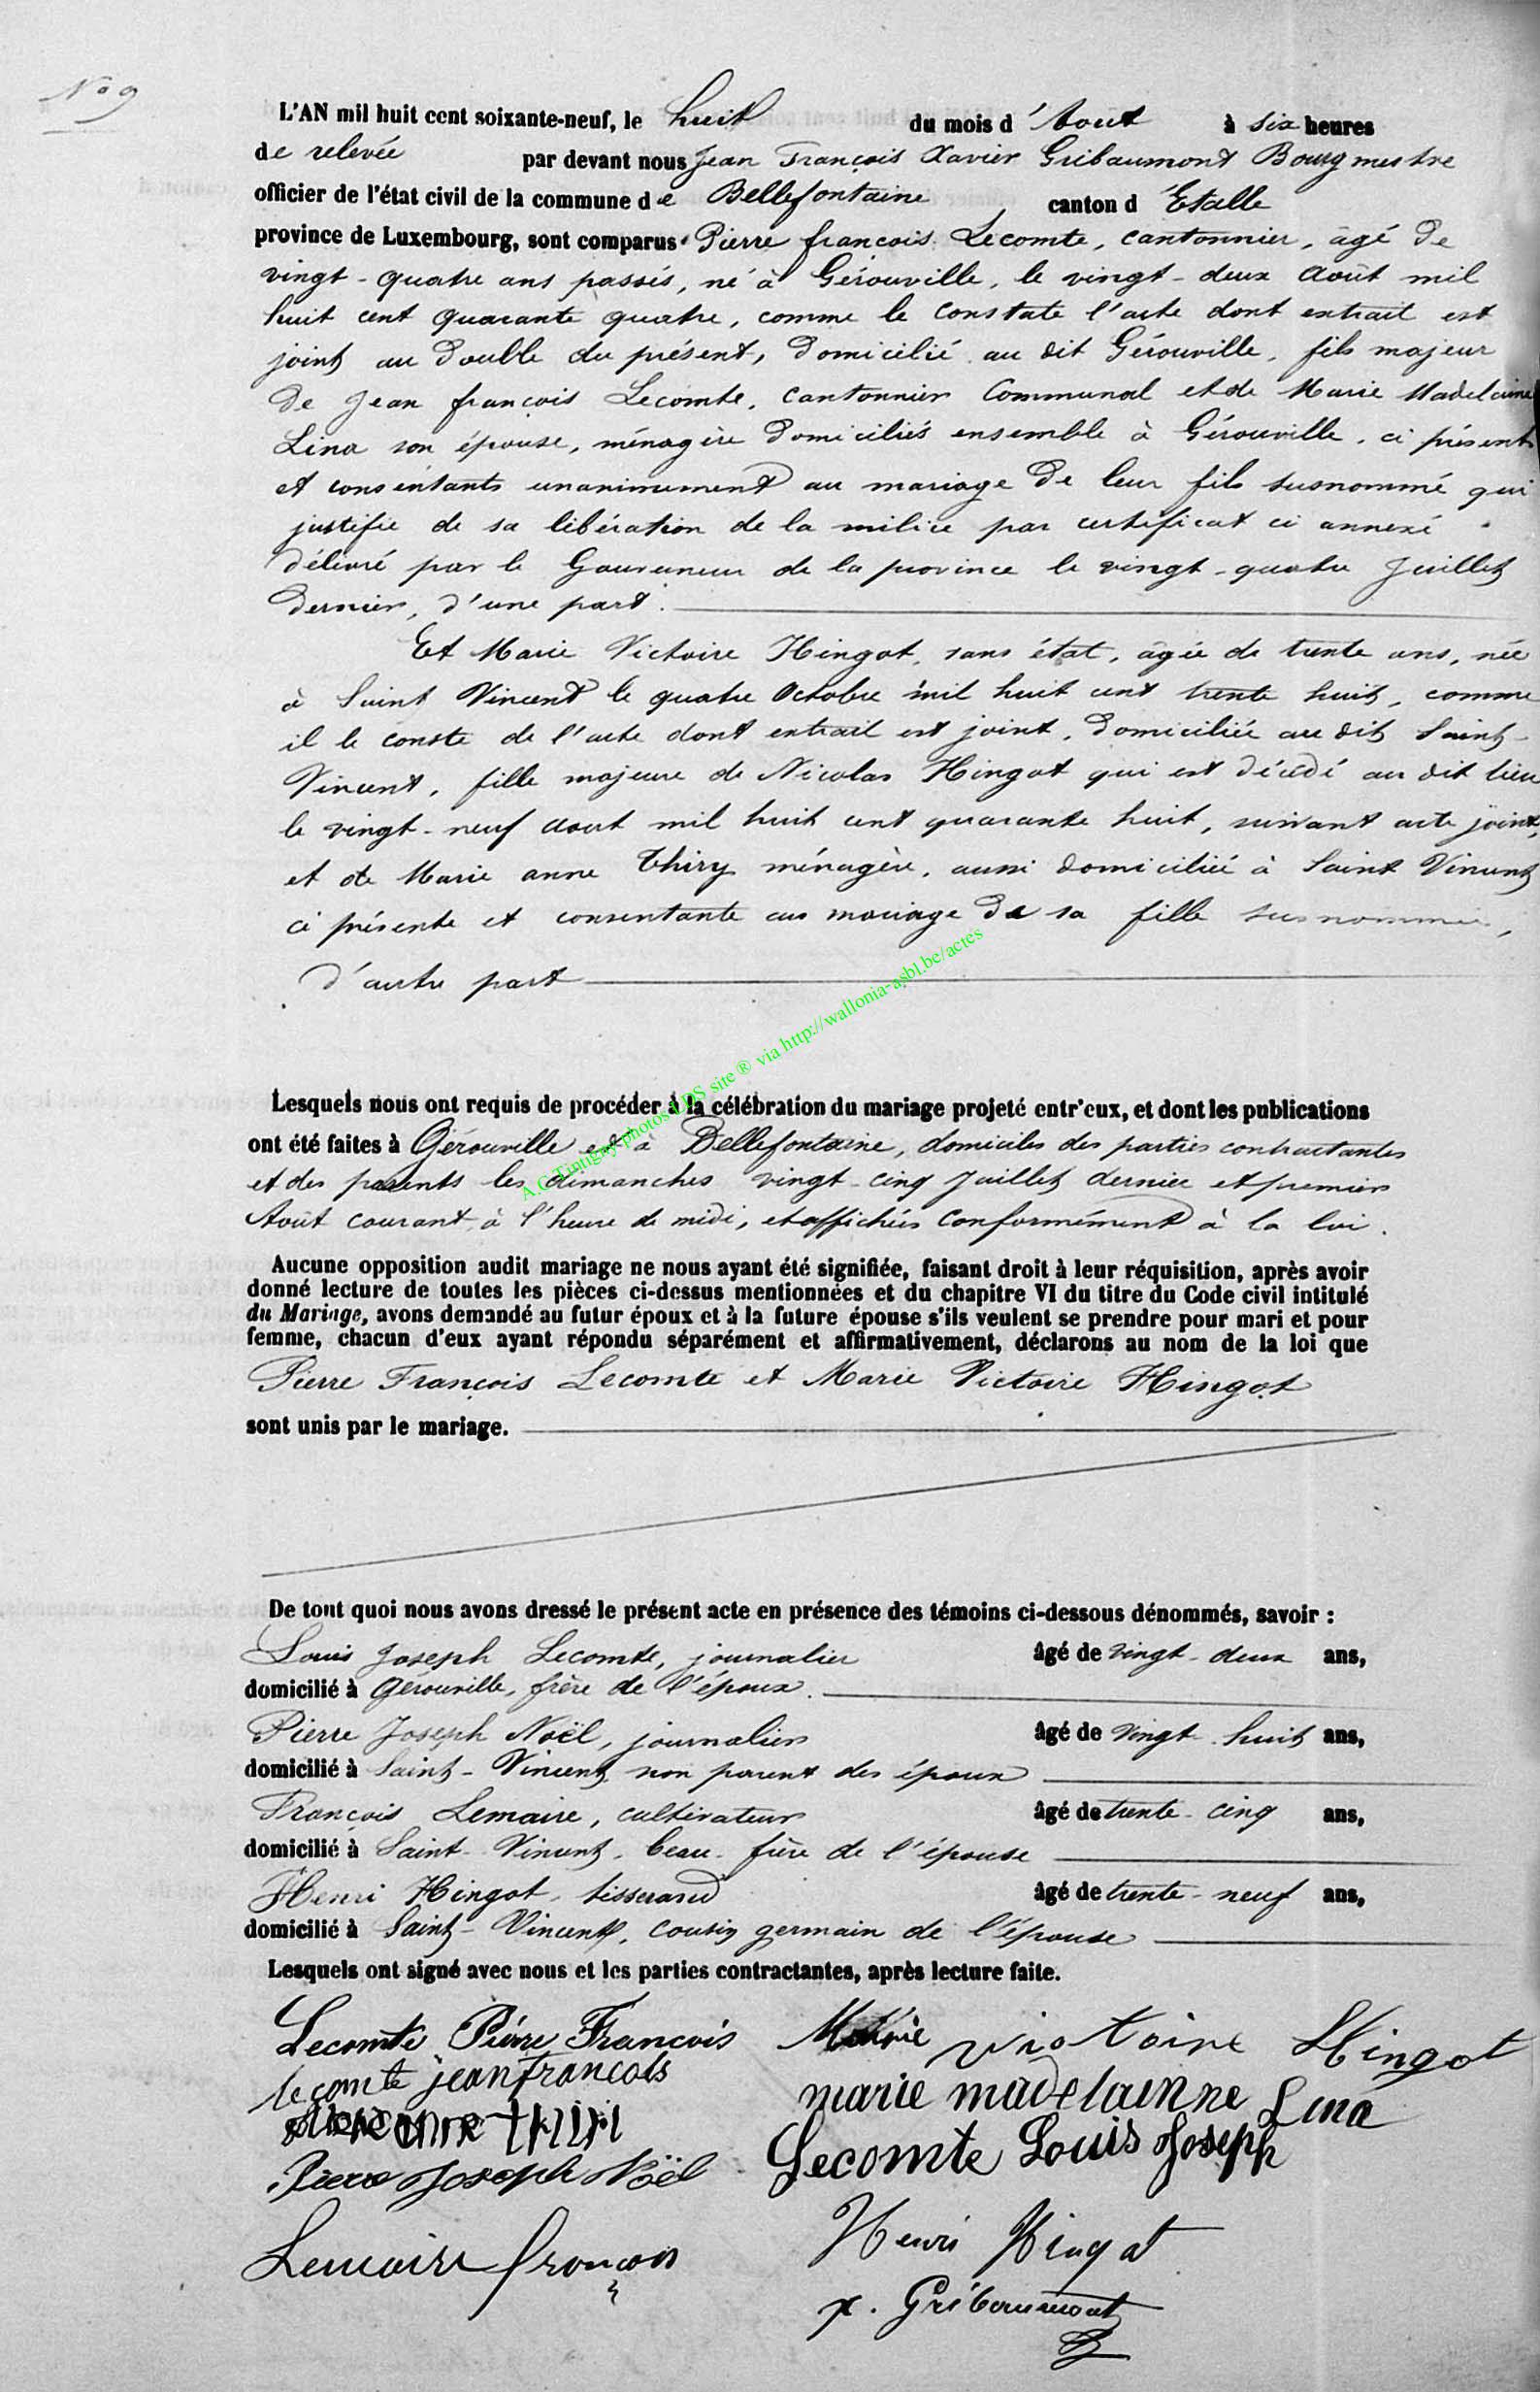 N° 9
L'AN mil huit cent soixante-neuf, le huit du mois d'Aout à six heures
de relevée par devant nous Jean François Xavier Gribaumont Bourgmestre
officier de l'état civil de la commune de Bellefontaine, canton d'Etalle
province de Luxembourg, sont comparus Pierre françois Lecomte, cantonnier, âgé de
vingt-quatre ans passés, né à Gérouville, le vingt-deux Août mil
huit cent quarante quatre, comme le constate l'acte dont extrait est
joint au double du présent, domicilié au dit Gérouville, fils majeur
de Jean françois Lecomte, cantonnier communal et de Marie Madelaine
Lina son épouse, ménagère domiciliés ensemble à Gérouville, ci présents
et consentants unanimement au mariage de leur fils susnommé qui
justifie de sa libération de la milice par certificat ci annexé
délivré par le Gouverneur de la province le vingt-quatre Juillet
dernier, d'une part.
Et Marie Victoire Hingot, sans état, âgée de trente ans, née
à Saint Vincent le quatre Octobre mil huit cent trente huit, comme
il le conste de l'acte dont extrait est joint, domiciliée au dit Saint-
Vincent, fille majeure de Nicolas Hingot qui est décédé au dit lieu
le vingt-neuf aout mil huit cent quarante huit, suivant acte joint,
et de Marie anne Thiry ménagère, aussi domiciliée à Saint Vincent
ci présente et consentante au mariage de sa fille susnommée,
d'autre part
Lesquels nous ont requis de procéder à la célébration du mariage projeté entr'eux, et dont les publications
ont été faites à Gérouville et à Bellefontaine, domiciles des parties contractantes
et des parents les dimanches vingt-cinq Juillet dernier et premier
Août courant à l'heure de midi, et affichées conformément à la loi.
Aucune opposition audit mariage ne nous ayant été signifiée, faisant droit à leur réquisition, après avoir
donné lecture de toutes les pièces ci-dessus mentionnées et du chapitre VI du titre du Code civil intitulé
du Mariage, avons demandé au futur époux et à la future épouse s'ils veulent se prendre pour mari et pour
femme, chacun d'eux ayant répondu séparément et affirmativement, déclarons au nom de la loi que
Pierre François Lecomte et Marie Victoire Hingot
sont unis par le mariage.
De tout quoi nous avons dressé le présent acte en présence des témoins ci-dessous dénommés, savoir :
Louis Joseph Lecomte, journalier âgé de vingt-deux ans,
domicilié à Gérouville, frère de l'époux.
Pierre Joseph Noël, journalier âgé de vingt-huit ans,
domicilié à Saint-Vincent non parent des époux
François Lemaire, cultivateur âgé de trente-cinq ans,
domicilié à Saint-Vincent, beau-frère de l'épouse
Henri Hingot, tisserand âgé de trente-neuf ans,
domicilié à Saint-Vincent, cousin germain de l'épouse
Lesquels ont signé avec nous et les parties contractantes, après lecture faite.
Lecomte Pierre François Marie victoire Hingot
lecomte jean francois marie madelainne Lina
anne thiri Lecomte Louis Joseph
Pierre Joseph Noël Henri Hingot
Lemaire françois
x. Gribaumont
A.C Tintigny photos LDS site ® via http://wallonia-asbl.be/actes